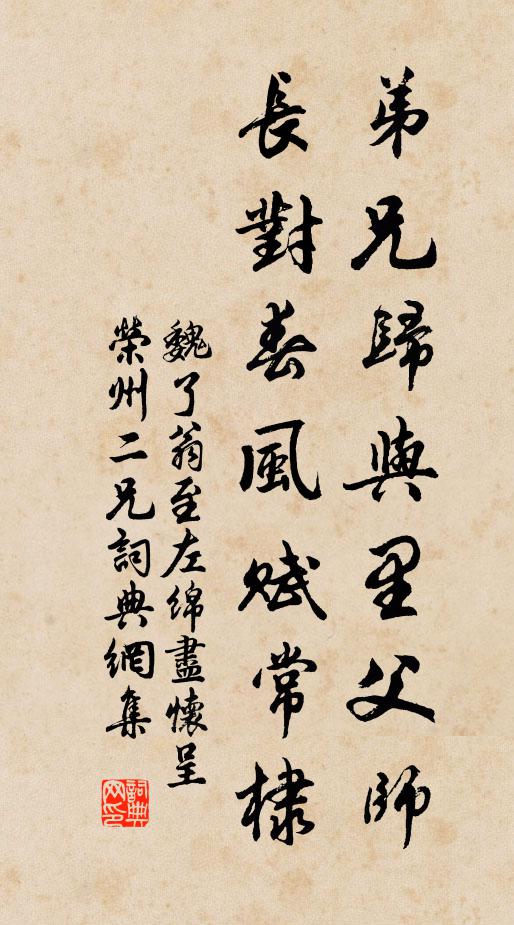 弟兄歸與里父師
長對春風賦常棣
魏了翁至左綿盡懷呈
榮州二兄詞典網集
詞典
网印